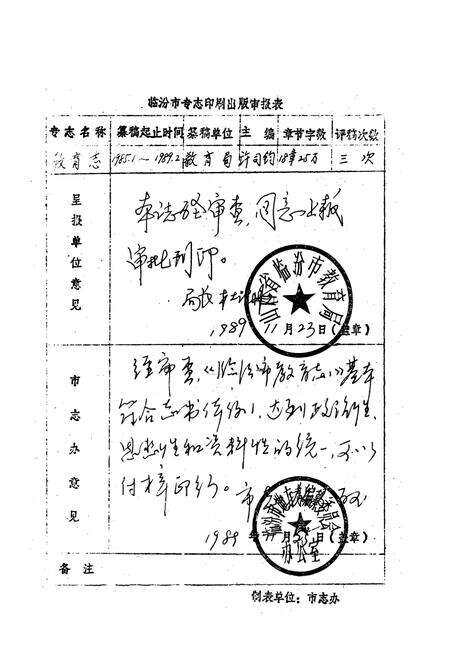 临汾市专志印刷出版审报表
专志名称 纂稿起止时间 纂稿单位 主编 章节字数 评稿次数
教育志 1985.1～1989.2 教育局 许司钧 18章25万 三次
呈报单位意见
本志经审查,同意上报
审批刊印。
局长
山西省临汾市教育局
1989 11月23日(盖章)
市志办意见
经审查,《临汾市教育志》基本
符合志书体例,达到政治性、
思想性和资料性的统一,可以
付梓印行。
办公室
1989 (盖章)
备注
制表单位:市志办